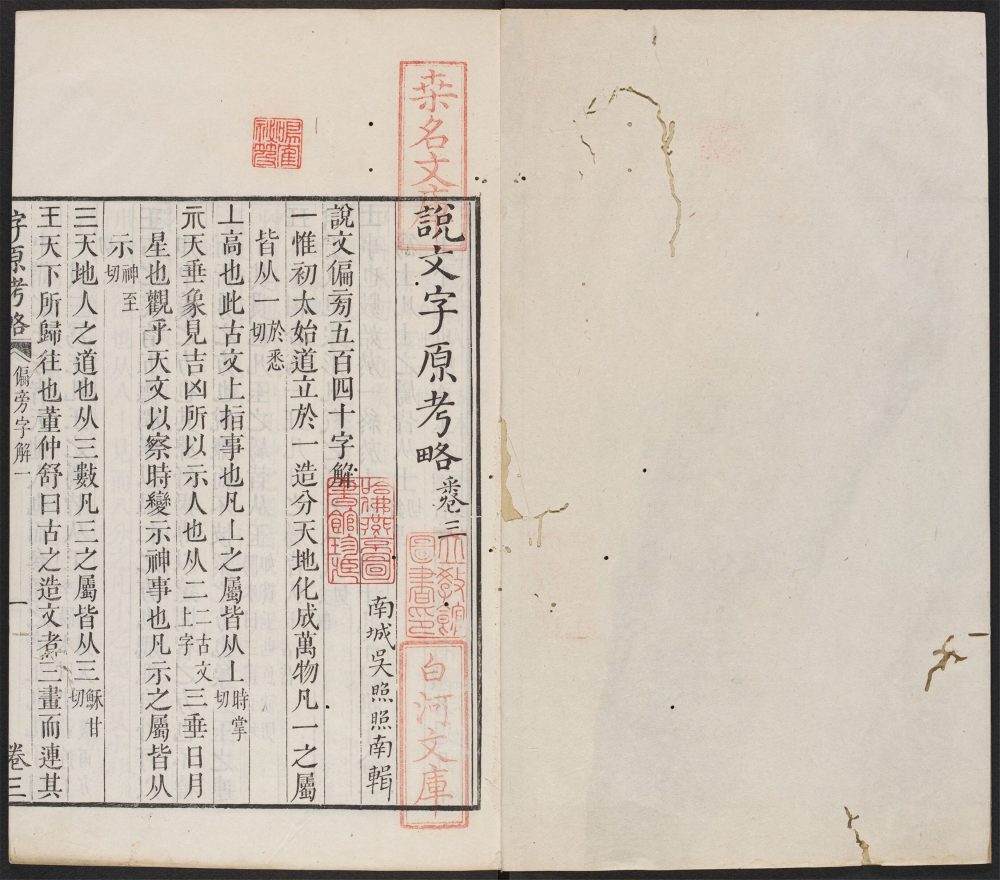 說文字原考略卷三
南城吳照照南輯
說文偏旁五百四十字解
一惟初太始道立於一造分天地化成萬物凡一之屬
皆从一於悉切
丄高也此古文上指事也凡丄之屬皆从丄時掌切
示天垂象見吉凶所以示人也从二二古文上字三垂日月
星也觀乎天文以察時變示神事也凡示之屬皆从
示神至切
三天地人之道也从三數凡三之屬皆从三穌甘切
王天下所歸往也董仲舒曰古之造文者三畫而連其
字原考略
偏旁字解一
一
卷三
桒名文庫
立教館圖書印
白河文庫
哈佛燕京圖書館珍藏